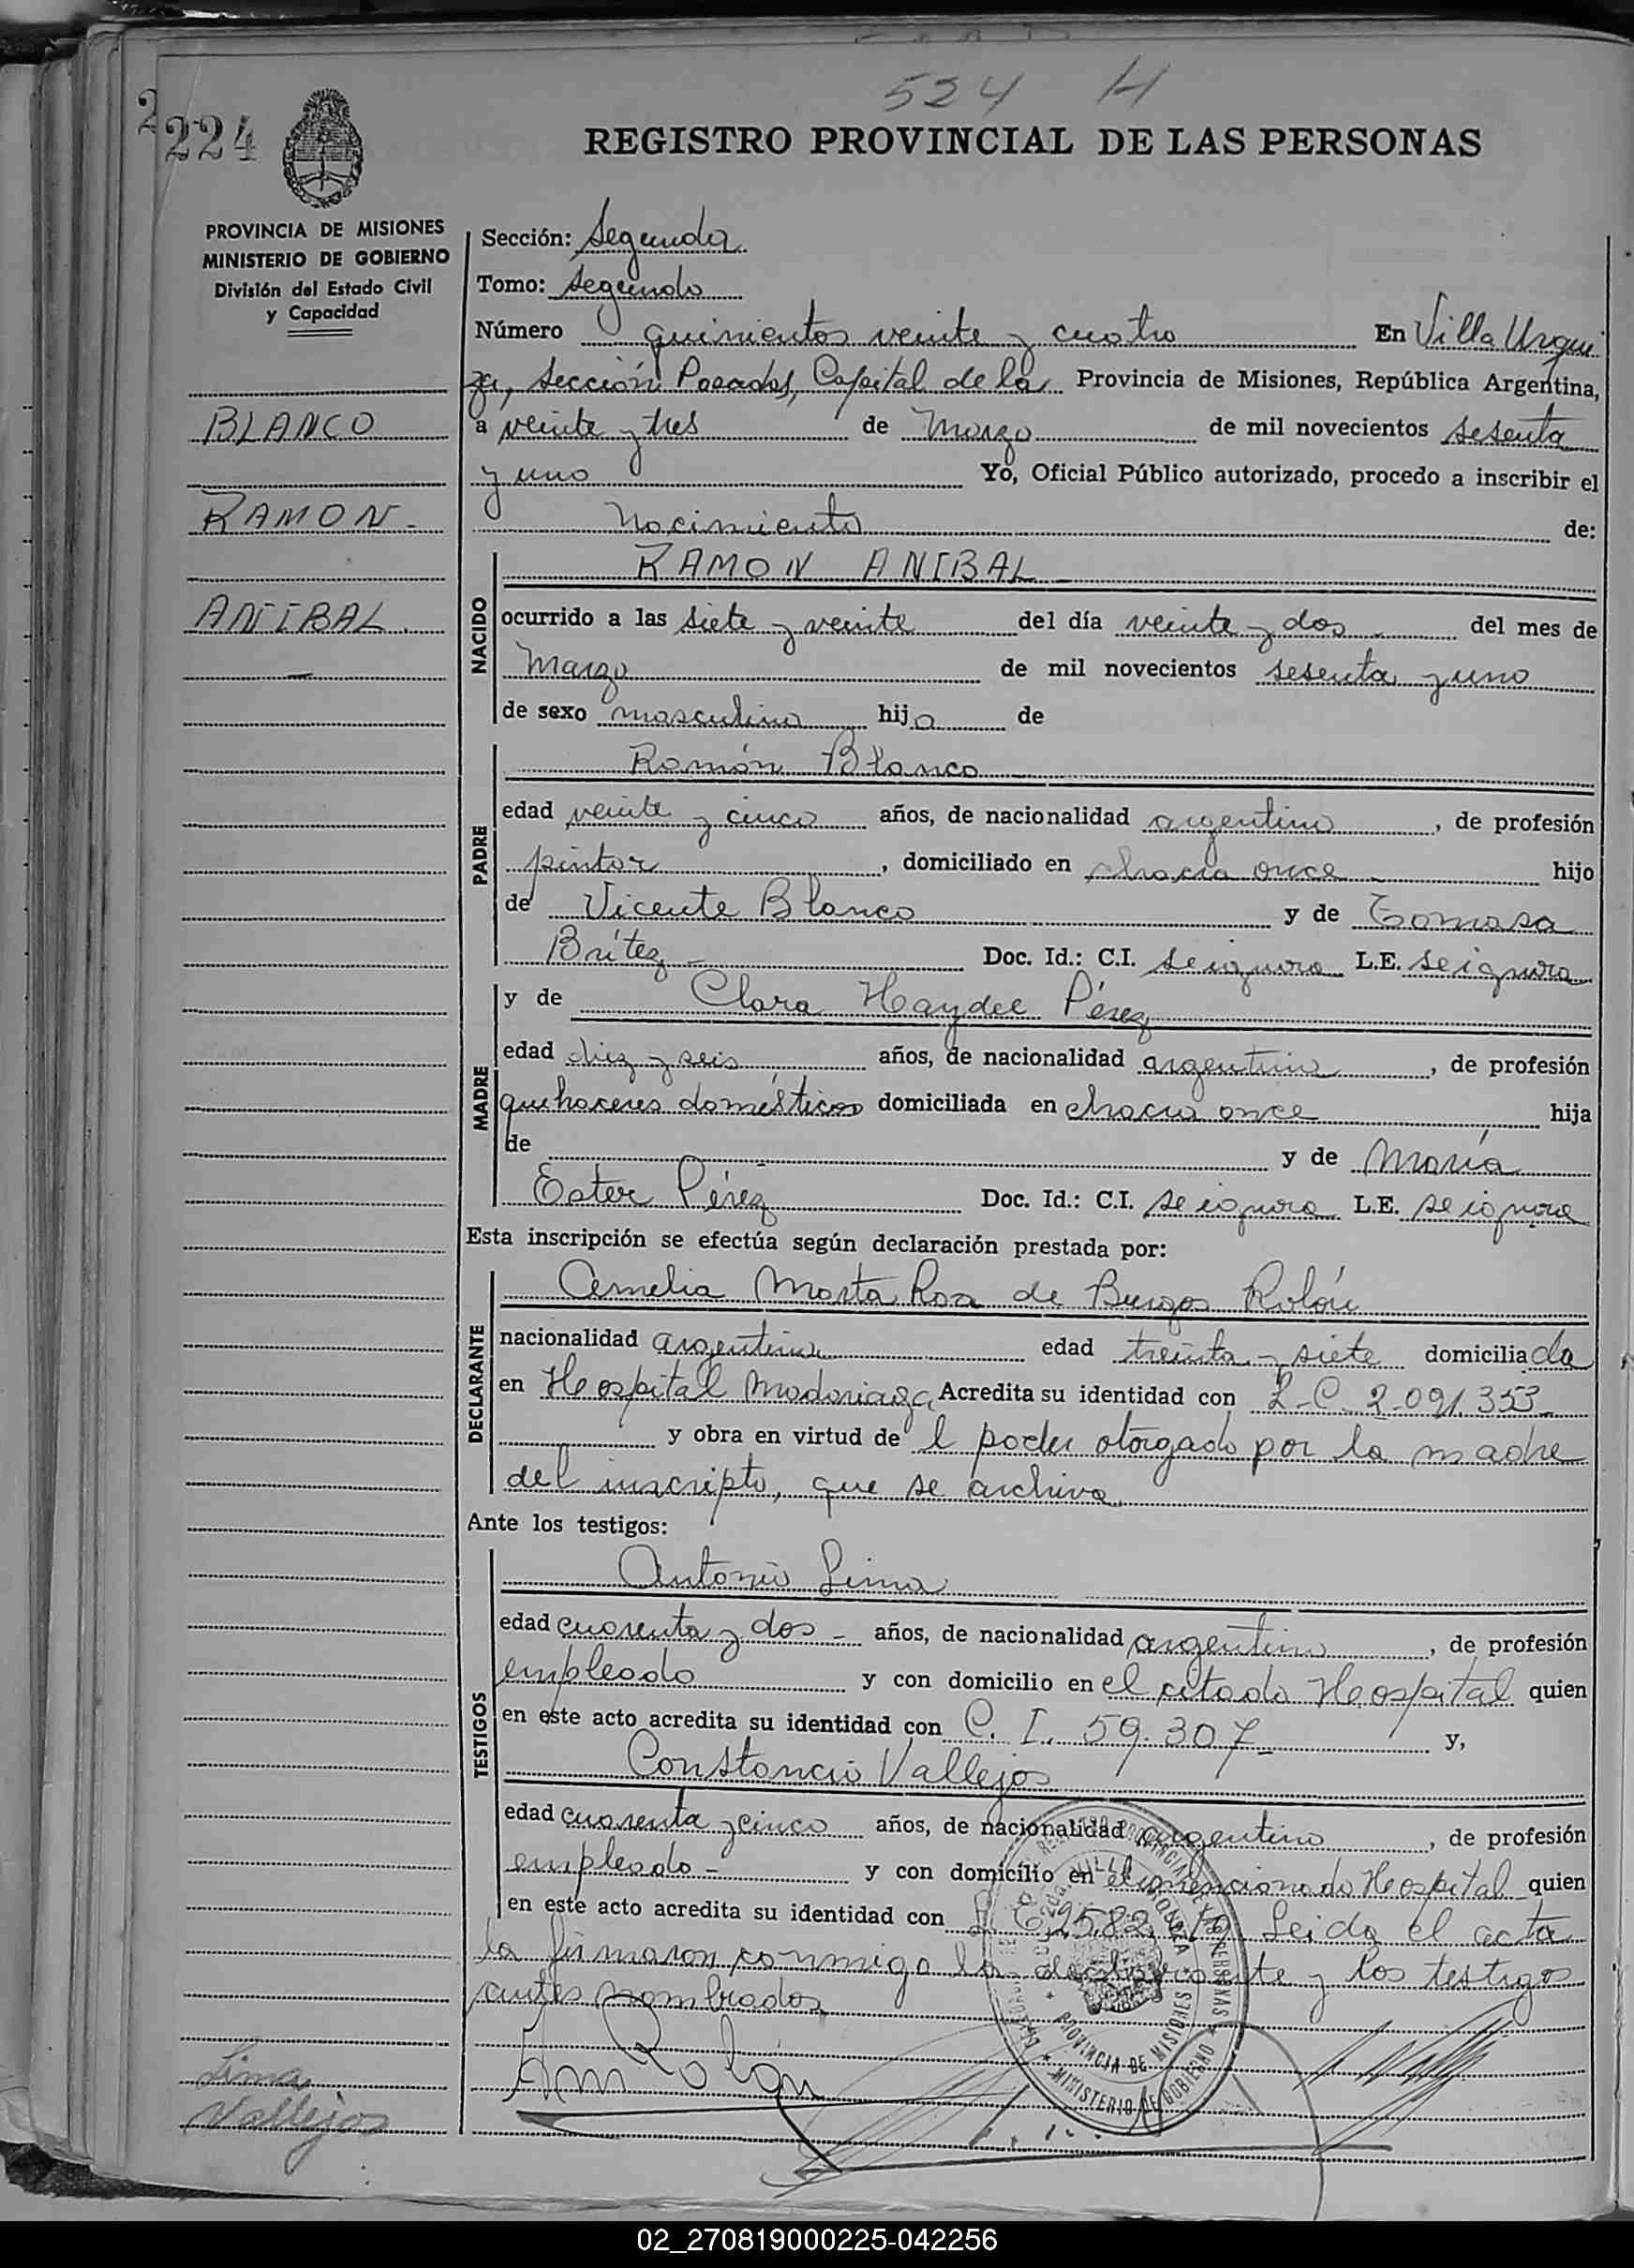 524 H
2
224
REGISTRO PROVINCIAL DE LAS PERSONAS
PROVINCIA DE MISIONES
MINISTERIO DE GOBIERNO
División del Estado Civil
y Capacidad
BLANCO
RAMON.
ANIBAL.
Sección: Segunda
Tomo: Segundo
Número quinientos veinte y cuatro En Villa Urqui
za, Sección Posadas, Capital de la Provincia de Misiones, República Argentina,
a veinte y tres de Marzo de mil novecientos sesenta
y uno Yo, Oficial Público autorizado, procedo a inscribir el
Nacimiento de:
NACIDO
RAMON ANIBAL
ocurrido a las siete y veinte del día veinte y dos del mes de
Marzo de mil novecientos sesenta y uno
de sexo masculino hijo de
PADRE
Ramón Blanco
edad veinte y cinco años, de nacionalidad argentino, de profesión
pintor, domiciliado en chacra once hijo
de Vicente Blanco y de Tomasa
Brítez Doc. Id.: C.I. se ignora L.E. se ignora
MADRE
y de Clara Haydee Pérez
edad diez y seis años, de nacionalidad argentina, de profesión
quehaceres domésticos domiciliada en chacra once hija
de y de María
Ester Pérez Doc. Id.: C.I. se ignora L.E. se ignora
Esta inscripción se efectúa según declaración prestada por:
DECLARANTE
Amelia Marta Roa de Burgos Rolón
nacionalidad argentina edad treinta y siete domiciliada
en Hospital Madariaga Acredita su identidad con L-C 2.091.353
y obra en virtud del poder otorgado por la madre
del inscripto, que se archiva
Ante los testigos:
TESTIGOS
Antonio Lima
edad cuarenta y dos - años, de nacionalidad argentino, de profesión
empleado y con domicilio en el citado Hospital quien
en este acto acredita su identidad con C. I. 59.307 - y,
Constancio Vallejos
edad cuarenta y cinco años, de nacionalidad argentino, de profesión
empleado - y con domicilio en el mencionado Hospital quien
en este acto acredita su identidad con Leida el acta
la firmaron conmigo la declarante y los testigos
antes nombrados
PROVINCIA DE MISIONES
MINISTERIO DE GOBIERNO
Am Rolón
Lima
Vallejos
02_270819000225-042256